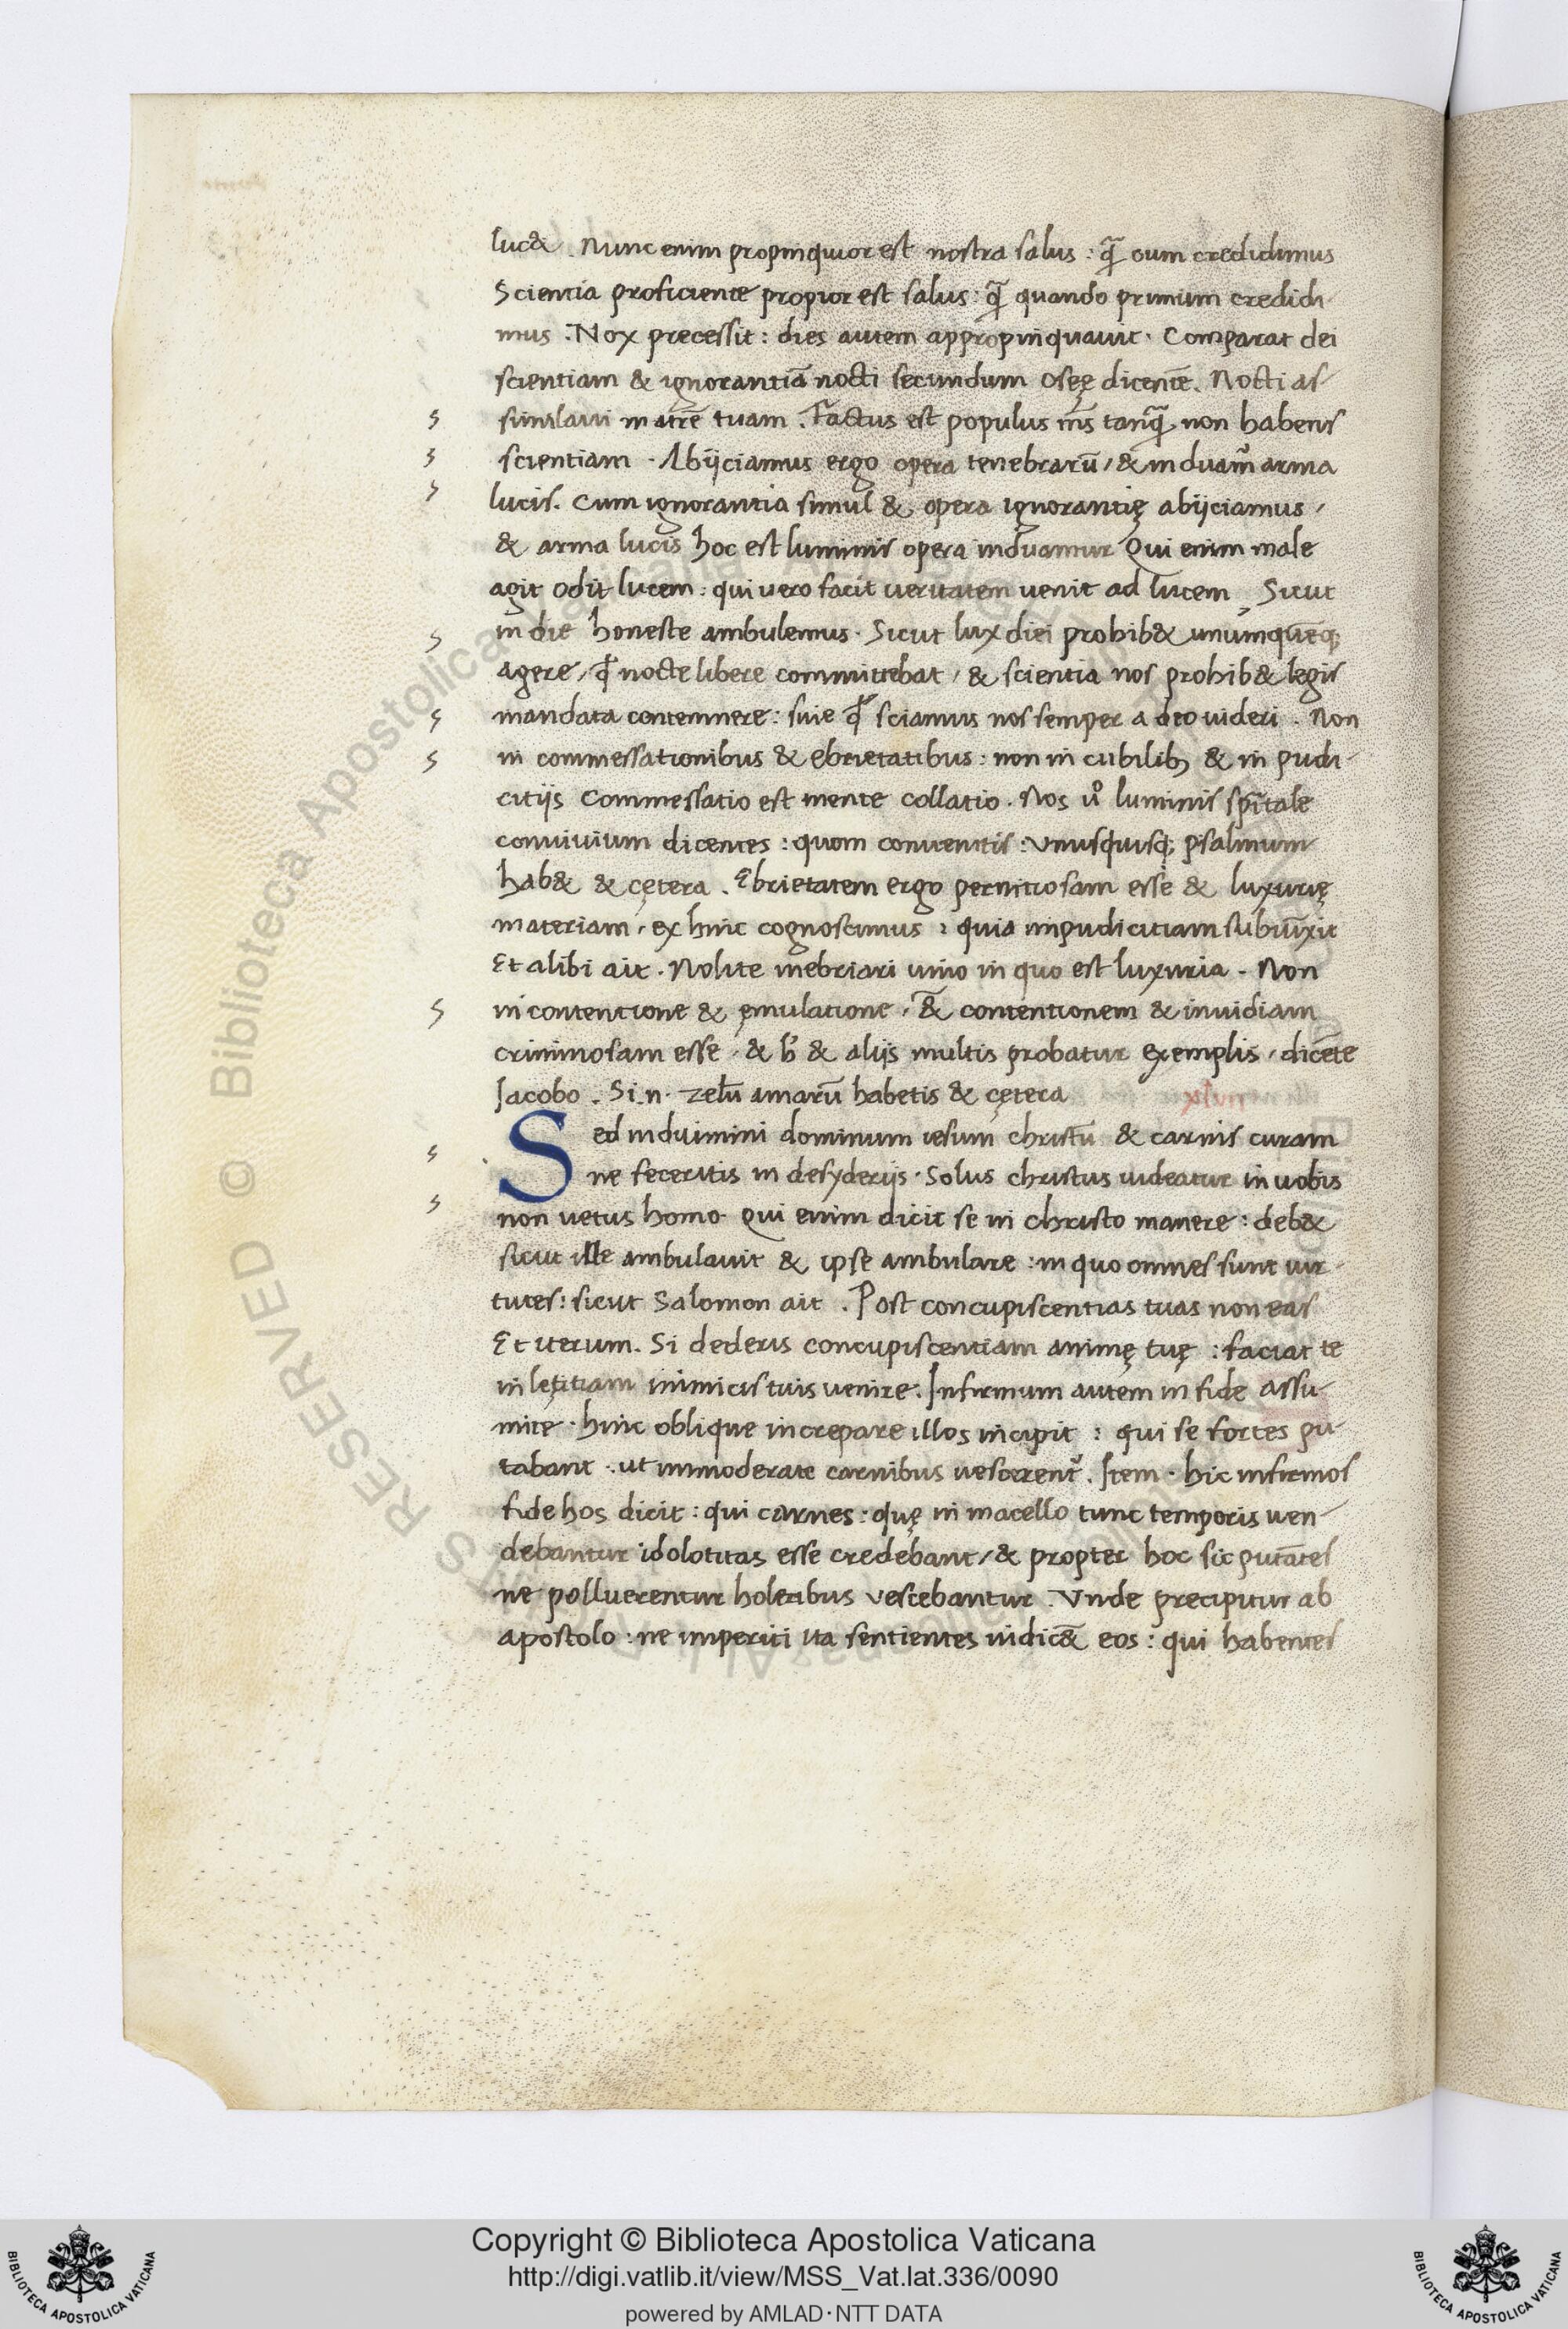 luc& . Nunc enim propinquior est nostra salus : q̃ cum credidimus
Scientia proficiente propior est salus : q̃ quando primum credidi-
mus . Nox precessit : dies autem appropinquauit . Comparat dei
scientiam & ignorantiã nocti secundum oseę dicentẽ . Nocti as-
similaui matrẽ tuam . Factus est populus m̃s tanq̃ non habens
scientiam . Abijciamus ergo opera tenebrarũ / & induam᾽ arma
lucis . Cum ignorantia simul & opera ignorantię abijciamus /
& arma lucis hoc est luminis opera induamur Qui enim male
agit odit lucem : qui uero facit ueritatem uenit ad lucem , Sicut
in die honeste ambulemus . Sicut lux diei prohib& unumquẽq;
agere / q̃ nocte libere committebat / & scientia nos prohib& legis
mandata contemnere : siue q̃ sciamus nos semper a deo uideri . Non
in commessationibus & ebrietatibus : non in cubilib; & in pudi-
citijs Commessatio est mente collatio . Nos uº luminis sp̃itale
conuiuium dicentes : quom conuenitis : Vnusquisq; psalmum
hab& & cętera . Ebrietatem ergo pernitiosam esse & luxurię
materiam / ex hinc cognoscimus : quia impudicitiam subiũxit
Et alibi ait . Nolite inebriari uino in quo est luxuria . Non
in contentione & ęmulatione . &̃ contentionem & inuidiam
criminosam esse / & b᾽ & alijs multis probatur exemplis / dicẽte
Jacobo . Si . n . zelũ amarũ habetis & cętera
Sed induimini dominum iesum christũ & carnis curam
ne feceritis in desyderijs . Solus christus uideatur in uobis
non uetus homo . Qui enim dicit se in christo manere : deb&
sicut ille ambulauit & ipse ambulare : in quo omnes sunt uir-
tutes : sicut Salomon ait . Post concupiscentias tuas non eas
Et iterum . Si dederis concupiscentiam animę tuę : faciat te
in lętitiam inimicis tuis uenire . Infirmum autem in fide assu-
mite . hinc oblique increpare illos incipit : qui se fortes pu-
tabant . ut immoderate carnibus uescerent᾽ . Item . hic infirmos
fide hos dicit : qui carnes : quę in macello tunc temporis uen-
debantur idolotitas esse credebant / & propter hoc sic putãtes
ne polluerentur holeribus vescebantur . Vnde precipitur ab
apostolo : ne imperiti ita sentientes iudic&̃ eos : qui habentes
Copyright © Biblioteca Apostolica Vaticana
http://digi.vatlib.it/view/MSS_Vat.lat.336/0090
powered by AMLAD·NTT DATA